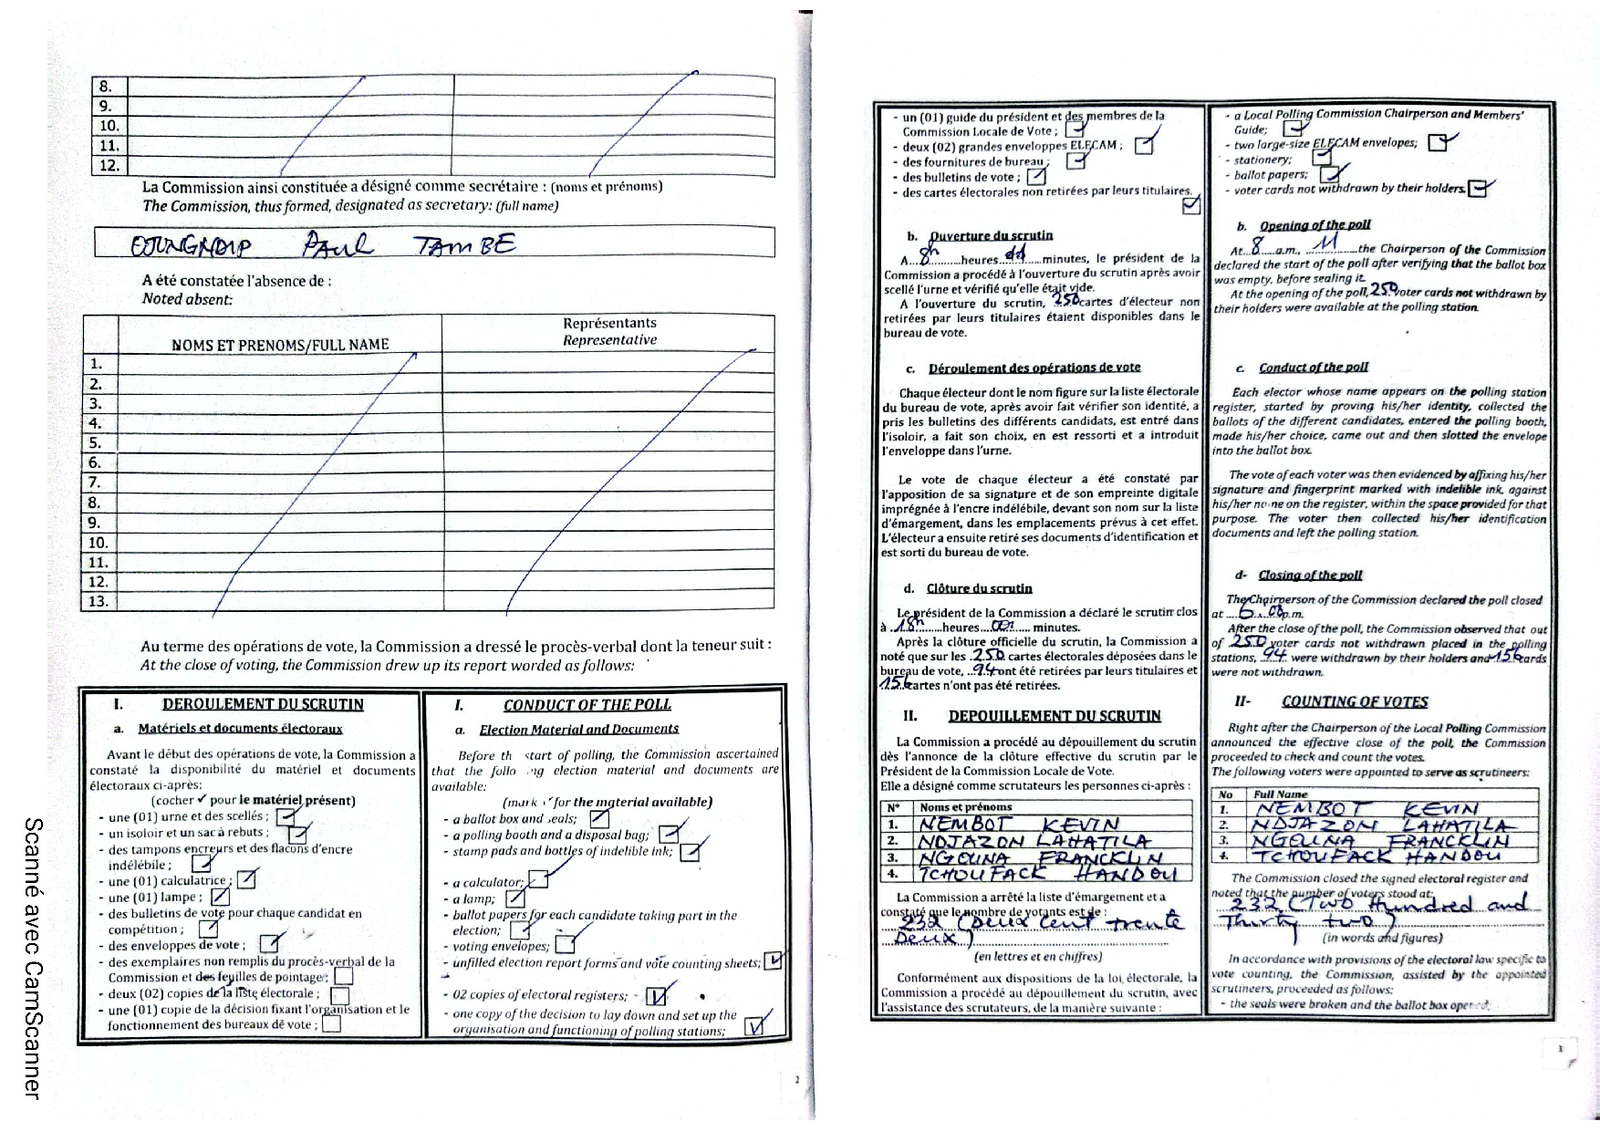 8.
9.
10.
11.
12.
La Commission ainsi constituée a désigné comme secrétaire : (noms et prénoms)
The Commission, thus formed, designated as secretary: (full name)
PAUL TAMBE
A été constatée l'absence de :
Noted absent:
NOMS ET PRENOMS/FULL NAME
Représentants
Representative
1.
2.
3.
4.
5.
6.
7.
8.
9.
10.
11.
12.
13.
Au terme des opérations de vote, la Commission a dressé le procès-verbal dont la teneur suit :
At the close of voting, the Commission drew up its report worded as follows:
I. DEROULEMENT DU SCRUTIN
a. Matériels et documents électoraux
Avant le début des opérations de vote, la Commission a
constaté la disponibilité du matériel et documents
électoraux ci-après:
(cocher ✓ pour le matériel présent)
- une (01) urne et des scellés ;
- un isoloir et un sac à rebuts ;
- des tampons encreurs et des flacons d'encre
indélébile ;
- une (01) calculatrice ;
- une (01) lampe ;
- des bulletins de vote pour chaque candidat en
compétition ;
- des enveloppes de vote ;
- des exemplaires non remplis du procès-verbal de la
Commission et des feuilles de pointage;
- deux (02) copies de la liste électorale ;
- une (01) copie de la décision fixant l'organisation et le
fonctionnement des bureaux de vote ;
I. CONDUCT OF THE POLL
a. Election Material and Documents
Before th start of polling, the Commission ascertained
that the follo ng election material and documents are
available:
(mark for the material available)
- a ballot box and seals;
- a polling booth and a disposal bag;
- stamp pads and bottles of indelible ink;
- a calculator;
- a lamp;
- ballot papers for each candidate taking part in the
election;
- voting envelopes;
- unfilled election report forms and vote counting sheets;
- 02 copies of electoral registers;
- one copy of the decision to lay down and set up the
organisation and functioning of polling stations;
2
- un (01) guide du président et des membres de la
Commission Locale de Vote ;
- deux (02) grandes enveloppes ELECAM ;
- des fournitures de bureau ;
- des bulletins de vote ;
- des cartes électorales non retirées par leurs titulaires.
b. Ouverture du scrutin
A...8h.........heures.........minutes, le président de la
Commission a procédé à l'ouverture du scrutin après avoir
scellé l'urne et vérifié qu'elle était vide.
A l'ouverture du scrutin, 250 cartes d'électeur non
retirées par leurs titulaires étaient disponibles dans le
bureau de vote.
c. Déroulement des opérations de vote
Chaque électeur dont le nom figure sur la liste électorale
du bureau de vote, après avoir fait vérifier son identité, a
pris les bulletins des différents candidats, est entré dans
l'isoloir, a fait son choix, en est ressorti et a introduit
l'enveloppe dans l'urne.
Le vote de chaque électeur a été constaté par
l'apposition de sa signature et de son empreinte digitale
imprégnée à l'encre indélébile, devant son nom sur la liste
d'émargement, dans les emplacements prévus à cet effet.
L'électeur a ensuite retiré ses documents d'identification et
est sorti du bureau de vote.
d. Clôture du scrutin
Le président de la Commission a déclaré le scrutin clos
à ..18h........heures....00...... minutes.
Après la clôture officielle du scrutin, la Commission a
noté que sur les .250 cartes électorales déposées dans le
bureau de vote, ..94 ont été retirées par leurs titulaires et
156 cartes n'ont pas été retirées.
II. DEPOUILLEMENT DU SCRUTIN
La Commission a procédé au dépouillement du scrutin
dès l'annonce de la clôture effective du scrutin par le
Président de la Commission Locale de Vote.
Elle a désigné comme scrutateurs les personnes ci-après :
N° Noms et prénoms
1. NEMBOT KEVIN
2. NDJAZON LAHATILA
3. NGOUNA FRANCKLIN
4. TCHOUFACK HANDOU
La Commission a arrêté la liste d'émargement et a
constaté que le nombre de votants est de :
232 (Deux cent trente
Deux)
(en lettres et en chiffres)
Conformément aux dispositions de la loi électorale, la
Commission a procédé au dépouillement du scrutin, avec
l'assistance des scrutateurs, de la manière suivante :
- a Local Polling Commission Chairperson and Members'
Guide;
- two large-size ELECAM envelopes;
- stationery;
- ballot papers;
- voter cards not withdrawn by their holders.
b. Opening of the poll
At..8....a.m., ...11......the Chairperson of the Commission
declared the start of the poll after verifying that the ballot box
was empty, before sealing it.
At the opening of the poll, 250 voter cards not withdrawn by
their holders were available at the polling station.
c. Conduct of the poll
Each elector whose name appears on the polling station
register, started by proving his/her identity, collected the
ballots of the different candidates, entered the polling booth,
made his/her choice, came out and then slotted the envelope
into the ballot box.
The vote of each voter was then evidenced by affixing his/her
signature and fingerprint marked with indelible ink, against
his/her name on the register, within the space provided for that
purpose. The voter then collected his/her identification
documents and left the polling station.
d- Closing of the poll
The Chairperson of the Commission declared the poll closed
at ...6...00 p.m.
After the close of the poll, the Commission observed that out
of 250 voter cards not withdrawn placed in the polling
stations, 94 were withdrawn by their holders and 156 cards
were not withdrawn.
II- COUNTING OF VOTES
Right after the Chairperson of the Local Polling Commission
announced the effective close of the poll, the Commission
proceeded to check and count the votes.
The following voters were appointed to serve as scrutineers:
No Full Name
1. NEMBOT KEVIN
2. NDJAZON LAHATILA
3. NGOUNA FRANCKLIN
4. TCHOUFACK HANDOU
The Commission closed the signed electoral register and
noted that the number of voters stood at:
232 (Two Hundred and
Thirty two)
(in words and figures)
In accordance with provisions of the electoral law specific to
vote counting, the Commission, assisted by the appointed
scrutineers, proceeded as follows:
- the seals were broken and the ballot box opened;
3
Scanné avec CamScanner